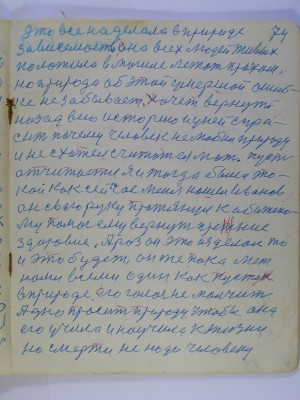 Это все наделала в природе 74
зависемость она всех людей живых
положела в
но природа об этой умершой ошиб-
ке не забывает, хочет вернуть
назад всю историю и у ней спро-
сит почему человек не любил природу
и не схотел считатся пусть
я и тогда была та-
кой как сейчас меня нашел иванов
он свою руку протянул к
му помог ему вернут прежние
здоровие, А раз он это изделал то
и это будет, он же пока меж
нами всеми один как
в природе его голос не молчит
А одно просит природу чтобы она
его учила и научила к жизни
но смерти не надо человеку